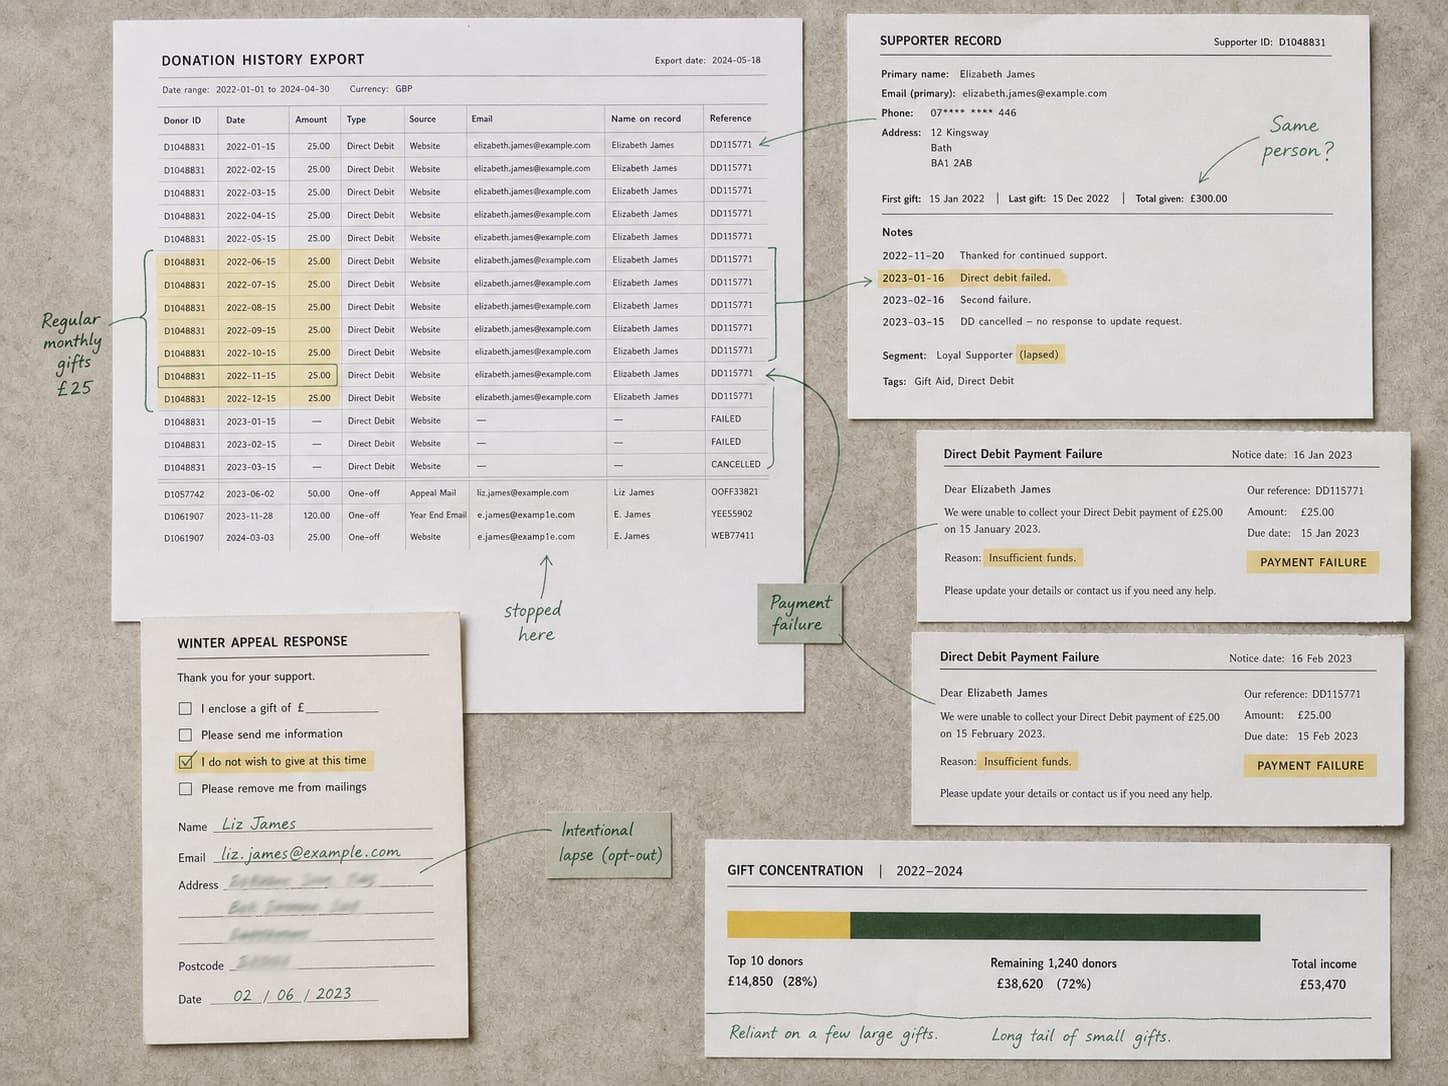 DONATION HISTORY EXPORT
Export date: 2024-05-18
Date range: 2022-01-01 to 2024-04-30 Currency: GBP
Donor ID Date Amount Type Source Email Name on record Reference
D1048831 2022-01-15 25.00 Direct Debit Website elizabeth.james@example.com Elizabeth James DD115771
D1048831 2022-02-15 25.00 Direct Debit Website elizabeth.james@example.com Elizabeth James DD115771
D1048831 2022-03-15 25.00 Direct Debit Website elizabeth.james@example.com Elizabeth James DD115771
D1048831 2022-04-15 25.00 Direct Debit Website elizabeth.james@example.com Elizabeth James DD115771
D1048831 2022-05-15 25.00 Direct Debit Website elizabeth.james@example.com Elizabeth James DD115771
D1048831 2022-06-15 25.00 Direct Debit Website elizabeth.james@example.com Elizabeth James DD115771
D1048831 2022-07-15 25.00 Direct Debit Website elizabeth.james@example.com Elizabeth James DD115771
D1048831 2022-08-15 25.00 Direct Debit Website elizabeth.james@example.com Elizabeth James DD115771
D1048831 2022-09-15 25.00 Direct Debit Website elizabeth.james@example.com Elizabeth James DD115771
D1048831 2022-10-15 25.00 Direct Debit Website elizabeth.james@example.com Elizabeth James DD115771
D1048831 2022-11-15 25.00 Direct Debit Website elizabeth.james@example.com Elizabeth James DD115771
D1048831 2022-12-15 25.00 Direct Debit Website elizabeth.james@example.com Elizabeth James DD115771
D1048831 2023-01-15 — Direct Debit Website — — FAILED
D1048831 2023-02-15 — Direct Debit Website — — FAILED
D1048831 2023-03-15 — Direct Debit Website — — CANCELLED
D1057742 2023-06-02 50.00 One-off Appeal Mail liz.james@example.com Liz James OOFF33821
D1061907 2023-11-28 120.00 One-off Year End Email e.james@examp1e.com E. James YEE55902
D1061907 2024-03-03 25.00 One-off Website e.james@examp1e.com E. James WEB77411
Regular
monthly
gifts
£25
stopped
here
SUPPORTER RECORD
Supporter ID: D1048831
Primary name: Elizabeth James
Email (primary): elizabeth.james@example.com
Phone: 07**** **** 446
Address: 12 Kingsway
Bath
BA1 2AB
Same
person?
First gift: 15 Jan 2022 | Last gift: 15 Dec 2022 | Total given: £300.00
Notes
2022-11-20 Thanked for continued support.
2023-01-16 Direct debit failed.
2023-02-16 Second failure.
2023-03-15 DD cancelled – no response to update request.
Segment: Loyal Supporter (lapsed)
Tags: Gift Aid, Direct Debit
Direct Debit Payment Failure
Notice date: 16 Jan 2023
Dear Elizabeth James
We were unable to collect your Direct Debit payment of £25.00
on 15 January 2023.
Reason: Insufficient funds.
Please update your details or contact us if you need any help.
Our reference: DD115771
Amount: £25.00
Due date: 15 Jan 2023
PAYMENT FAILURE
Payment
failure
Direct Debit Payment Failure
Notice date: 16 Feb 2023
Dear Elizabeth James
We were unable to collect your Direct Debit payment of £25.00
on 15 February 2023.
Reason: Insufficient funds.
Please update your details or contact us if you need any help.
Our reference: DD115771
Amount: £25.00
Due date: 15 Feb 2023
PAYMENT FAILURE
WINTER APPEAL RESPONSE
Thank you for your support.
I enclose a gift of £
Please send me information
I do not wish to give at this time
Please remove me from mailings
Name Liz James
Email liz.james@example.com
Address
Postcode
Date 02 / 06 / 2023
Intentional
lapse (opt-out)
GIFT CONCENTRATION | 2022–2024
Top 10 donors
£14,850 (28%)
Remaining 1,240 donors
£38,620 (72%)
Total income
£53,470
Reliant on a few large gifts.
Long tail of small gifts.